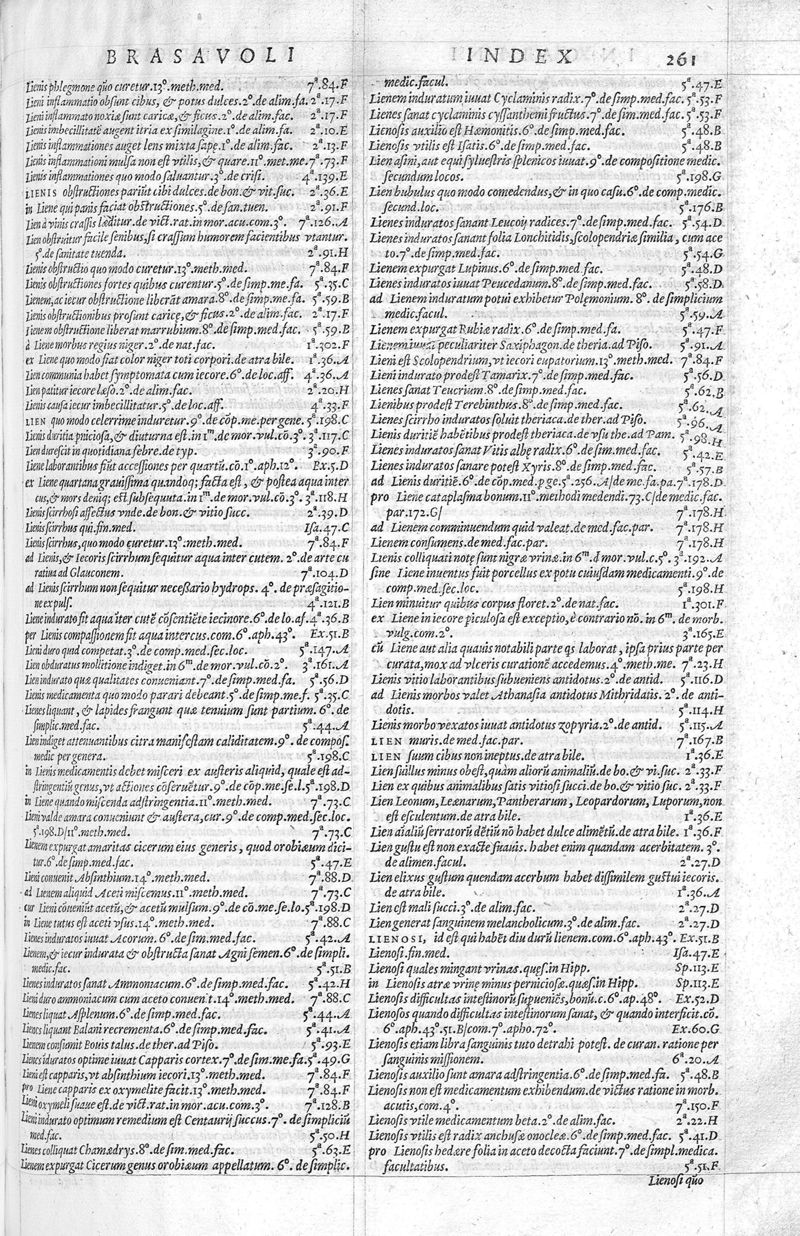 BRASAVOLI
Lienis phlegmone quo curetur.13°.meth.med. 7ª.84.F
Lieni inflammatio obsunt cibus, & potus dulces.2°.de alim.fa. 2ª.17.F
Lieni inflammato noxiæ sunt caricæ, & ficus.2°.de alim.fac. 2ª.17.F
Lienis imbecillitatē augent itria ex similagine.1°.de alim.fa. 2ª.10.E
Lienis inflammationes auget lens mixta sapę.1°.de alim.fac. 2ª.13.F
Lienis inflammationi mulsa non est vtilis, & quare.11°.met.me. 7ª.73.F
Lienis inflammationes quo modo saluantur.3°.de crisi. 4ª.139.E
LIENIS obstructiones pariūt cibi dulces.de bon.& vit.suc. 2ª.36.E
in Liene qui panis faciat obstructiones.5°.de san.tuen. 2ª.91.F
Lien à vinis crassis lęditur.de vict.rat.in mor.acu.com.3°. 7ª.126.A
Lien obstruitur facile senibus, si crassum humorem facientibus vtantur.
5°.de sanitate tuenda. 2ª.91.H
Lienis obstructio quo modo curetur.13°.meth.med. 7ª.84.F
Lienis obstructiones fortes quibus curentur.5°.de simp.me.fa. 5ª.35.C
Lienem, ac iecur obstructione liberāt amara.8°.de simp.me.fa. 5ª.59.B
Lienis obstructionibus prosunt caricę, & ficus.2°.de alim.fac. 2ª.17.F
Lienem obstructione liberat marrubium.8°.de simp.med.fac. 5ª.59.B
à Liene morbus regius niger.2°.de nat.fac. 1ª.302.F
ex Liene quo modo fiat color niger toti corpori.de atra bile. 1ª.36.A
Lien communia habet symptomata cum iecore.6°.de loc.aff. 4ª.36.A
Lien patitur iecore læso.2°.de alim.fac. 2ª.20.H
Lienis causa iecur imbecillitatur.5°.de loc.aff. 4ª.33.F
LIEN quo modo celerrime induretur.9°.de cōp.me.per gene. 5ª.198.C
Lienis duritia pniciosa, & diuturna est.in 1ᵐ.de mor.vul.cō.3°. 3ª.117.C
Lien durescit in quotidiana febre.de typ. 3ª.90.F
Liene laborantibus fiūt accessiones per quartū.cō.1°.aph.12°. Ex.5.D
ex Liene quartana grauissima quandoq; facta est, & postea aqua inter
cus, & mors deniq; est subsequuta.in 1ᵐ.de mor.vul.cō.3°. 3ª.118.H
Lien scirrhosi affectus vnde.de bon.& vitio succ. 2ª.39.D
Lienis scirrhus qui.fin.med. Isa.47.C
Lienis scirrhus, quo modo curetur.13°.meth.med. 7ª.84.F
ad Lienis, & Iecoris scirrhum sequitur aqua inter cutem. 2°.de arte cu
ratiua ad Glauconem. 7ª.104.D
ad Lienis scirrhum non sequitur necessario hydrops. 4°. de præsagitio-
ne ex puls. 4ª.121.B
Liene indurato fit aqua īter cutē cōsentiēte iecinore.6°.de lo.af. 4ª.36.B
per Lienis compassionem fit aqua intercus.com.6°.aph.43°. Ex.51.B
Lieni duro quid competat.3°.de comp.med.sec.loc. 5ª.147.A
Lien obduratus mollitione indiget.in 6ᵐ.de mor.vul.cō.2°. 3ª.161.A
Lien indurato quæ qualitates conueniant.7°.de simp.med.fa. 5ª.56.D
Lienis medicamenta quo modo parari debeant.5°.de simp.me.f. 5ª.35.C
Lienes liquant, & lapides frangunt quæ tenuium sunt partium. 6°.de
simplic.med.fac. 5ª.44.A
Lien indiget attenuantibus citra manifestam caliditatem.9°. de compos.
medic per genera. 5ª.198.C
in Lienis medicamentis debet misceri ex austeris aliquid, quale est ad-
stringentiū genus, vt actiones cōseruētur.9°.de cōp.me.se.l. 5ª.198.D
in Liene quando miscenda adstringentia.11°.meth.med. 7ª.73.C
Lieni valde amara conueniunt & austera, cur.9°.de comp.med.sec.loc.
5ª.198.D/11°.meth.med. 7ª.73.C
Lienem expurgat amaritas cicerum eius generis, quod orobiæum dici-
tur.6°.de simp.med.fac. 5ª.47.E
Lieni conuenit Absinthium.14°.meth.med. 7ª.88.D
ad Lienem aliquid Aceti miscemus.11°.meth.med. 7ª.73.C
cur Lieni cōueniūt acetū, & acetū mulsum.9°.de cō.me.se.lo. 5ª.198.D
in Liene tutus est aceti vsus.14°.meth.med. 7ª.88.C
Lienes induratos iuuat Acorum. 6°.de sim.med.fac. 5ª.42.A
Lienem, & iecur indurata & obstructa sanat Agni semen.6°.de simpli.
medic.fac. 5ª.51.B
Lienes induratos sanat Ammoniacum.6°.de simp.med.fac. 5ª.42.H
Lieni duro ammoniacum cum aceto conuenit.14°.meth.med. 7ª.88.C
Lienes liquat Asplenum.6°.de simp.med.fac. 5ª.44.A
Lienes liquant Balani recrementa.6°.de simp.med.fac. 5ª.41.A
Lienem consumit Bouis talus.de ther.ad Piso. 5ª.93.E
Lienes īduratos optime iuuat Capparis cortex.7°.de sim.me.fa. 5ª.49.G
Lieni est capparis, vt absinthium iecori.13°.meth.med. 7ª.84.F
pro Liene capparis ex oxymelite facit.13°.meth.med. 7ª.84.F
Lieni oxymeli suaue est.de vict.rat.in mor.acu.com.3°. 7ª.128.B
Lieni indurato optimum remedium est Centaurij succus.7°. de simpliciū
med.fac. 5ª.50.H
Lienes colliquat Chamædrys.8°.de sim.med.fac. 5ª.63.E
Lienem expurgat Cicerum genus orobiæum appellatum. 6°. de simplic.
INDEX 261
medic.facul. 5ª.47.E
Lienem induratum iuuat Cyclaminis radix.7°.de simp.med.fac. 5ª.53.F
Lienes sanat cyclaminis cyssanthemi fructus.7°.de sim.med.fac. 5ª.53.F
Lienosis auxilio est Hæmonitis.6°.de simp.med.fac. 5ª.48.B
Lienosis vtilis est Isatis.6°.de simp.med.fac. 5ª.48.B
Lien asini, aut equi syluestris splenicos iuuat.9°.de compositione medic.
secundum locos. 5ª.198.G
Lien bubulus quo modo comedendus, & in quo casu.6°.de comp.medic.
secund.loc. 5ª.176.B
Lienes induratos sanant Leucoij radices.7°.de simp.med.fac. 5ª.54.D
Lienes induratos sanant folia Lonchitidis, scolopendriæ similia, cum ace
to.7°.de simp.med.fac. 5ª.54.G
Lienem expurgat Lupinus.6°.de simp.med.fac. 5ª.48.D
Lienes induratos iuuat Peucedanum.8°.de simp.med.fac. 5ª.58.D
ad Lienem induratum potui exhibetur Polemonium. 8°. de simplicium
medic.facul. 5ª.59.A
Lienem expurgat Rubiæ radix. 6°.de simp.med.fa. 5ª.47.F
Lienem iuuat peculiariter Saxiphagon.de theria.ad Piso. 5ª.91.A
Lieni est Scolopendrium, vt iecori eupatorium.13°.meth.med. 7ª.84.F
Lieni indurato prodest Tamarix.7°.de simp.med.fac. 5ª.56.D
Lienes sanat Teucrium.8°.de simp.med.fac. 5ª.62.B
Lienibus prodest Terebinthus.8°.de simp.med.fac. 5ª.62.A
Lienes scirrho induratos soluit theriaca.de ther.ad Piso. 5ª.96.A
Lienis duritiē habētibus prodest theriaca.de vsu the.ad Pam. 5ª.98.H
Lienes induratos sanat Vitis albę radix.6°.de sim.med.fac. 5ª.42.E
Lienes induratos sanare potest Xyris.8°.de simp.med.fac. 5ª.57.B
ad Lienis duritiē.6°.de cōp.med.p ge.5ª.256.A/de me.fa.pa. 7ª.178.D
pro Liene cataplasma bonum.11°.methodi medendi.73.C/de medic.fac.
par.172.G/ 7ª.178.H
ad Lienem comminuendum quid valeat.de med.fac.par. 7ª.178.H
Lienem consumens.de med.fac.par. 7ª.178.H
Lienis colliquati notę sunt nigræ vrinæ.in 6ᵐ.d mor.vul.c.5°. 3ª.192.A
sine Liene inuentus fuit porcellus ex potu cuiusdam medicamenti.9°.de
comp.med.sec.loc. 5ª.198.H
Lien minuitur quibus corpus floret.2°.de nat.fac. 1ª.301.F
ex Liene in iecore piculosa est exceptio, è contrario nō. in 6ᵐ.de morb.
vulg.com.2°. 3ª.165.E
cū Liene aut alia quauis notabili parte qs laborat, ipsa prius parte per
curata, mox ad vlceris curationē accedemus.4°.meth.me. 7ª.23.H
Lienis vitio laborantibus subueniens antidotus.2°.de antid. 5ª.116.D
ad Lienis morbos valet Athanasia antidotus Mithridatis. 2°. de anti-
dotis. 5ª.114.H
Lienis morbo vexatos iuuat antidotus zopyria.2°.de antid. 5ª.115.A
LIEN muris.de med.fac.par. 7ª.167.B
LIEN suum cibus non ineptus.de atra bile. 1ª.36.E
Lien suillus minus obest, quàm aliorū animaliū.de bo.& vi.suc. 2ª.33.F
Lien ex quibus animalibus satis vitiosi succi.de bo.& vitio suc. 2ª.33.F
Lien Leonum, Leænarum, Pantherarum, Leopardorum, Luporum, non
est esculentum.de atra bile. 1ª.36.E
Lien aīaliū serratorū dētiū nō habet dulce alimētū.de atra bile. 1ª.36.F
Lien gustu est non exacte suauis. habet enim quandam acerbitatem. 3°.
de alimen.facul. 2ª.27.D
Lien elixus gustum quendam acerbum habet dissimilem gustui iecoris.
de atra bile. 1ª.36.A
Lien est mali succi.3°.de alim.fac. 2ª.27.D
Lien generat sanguinem melancholicum.3°.de alim.fac. 2ª.27.D
LIENOSI, id est qui habēt diu durū lienem.com.6°.aph.43°. Ex.51.B
Lienosi.fin.med. Isa.47.E
Lienosi quales mingant vrinas.quæs.in Hipp. Sp.113.E
in Lienosis atræ vrinę minus perniciosæ.quæs.in Hipp. Sp.113.E
Lienosis difficultas intestinorū supueniēs, bonū.c.6°.ap.48°. Ex.52.D
Lienosos quando difficultas intestinorum sanat, & quando interficit.cō.
6°.aph.43°.51.B/com.7°.apho.72°. Ex.60.G
Lienosis etiam libra sanguinis tuto detrahi potest. de curan.ratione per
sanguinis missionem. 6ª.20.A
Lienosis auxilio sunt amara adstringentia.6°.de simp.med.fa. 5ª.48.B
Lienosis non est medicamentum exhibendum.de victus ratione in morb.
acutis, com.4°. 7ª.150.F
Lienosis vtile medicamentum beta.2°.de alim.fac. 2ª.22.H
Lienosis vtilis est radix anchusæ onocleæ.6°.de simp.med.fac. 5ª.41.D
pro Lienosis hederæ folia in aceto decocta faciunt.7°.de simpl.medica.
facultatibus. 5ª.51.F
Lienosi quo